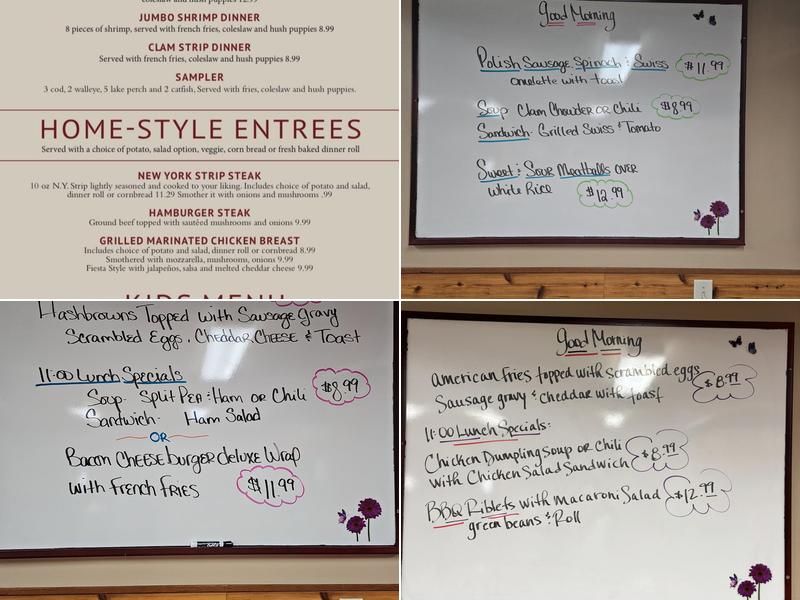 coleslaw and hush puppies 12.99
JUMBO SHRIMP DINNER
8 pieces of shrimp, served with french fries, coleslaw and hush puppies 8.99
CLAM STRIP DINNER
Served with french fries, coleslaw and hush puppies 8.99
SAMPLER
3 cod, 2 walleye, 5 lake perch and 2 catfish, Served with fries, coleslaw and hush puppies.
HOME-STYLE ENTREES
Served with a choice of potato, salad option, veggie, corn bread or fresh baked dinner roll
NEW YORK STRIP STEAK
10 oz N.Y. Strip lightly seasoned and cooked to your liking. Includes choice of potato and salad,
dinner roll or cornbread 11.29 Smother it with onions and mushrooms .99
HAMBURGER STEAK
Ground beef topped with sautéed mushrooms and onions 9.99
GRILLED MARINATED CHICKEN BREAST
Includes choice of potato and salad, dinner roll or cornbread 8.99
Smothered with mozzarella, mushrooms, onions 9.99
Fiesta Style with jalapeños, salsa and melted cheddar cheese 9.99
KIDS MENU
Good Morning
Polish Sausage, Spinach & Swiss $11.99
omelette with toast
Soup: Clam Chowder OR Chili $8.99
Sandwich: Grilled Swiss & Tomato
Sweet & Sour Meatballs over
White Rice $12.99
Hashbrowns Topped with Sausage Gravy
Scrambled Eggs, Cheddar Cheese & Toast
11:00 Lunch Specials
Soup: Split Pea & Ham OR Chili $8.99
Sandwich: Ham Salad
OR
Bacon Cheeseburger deluxe Wrap
with French Fries $11.99
Good Morning
American fries topped with scrambled eggs
Sausage gravy & cheddar with toast $8.99
11:00 Lunch Specials:
Chicken Dumpling soup or Chili
with Chicken Salad Sandwich $8.99
BBQ Riblets with macaroni Salad $12.99
green beans & Roll